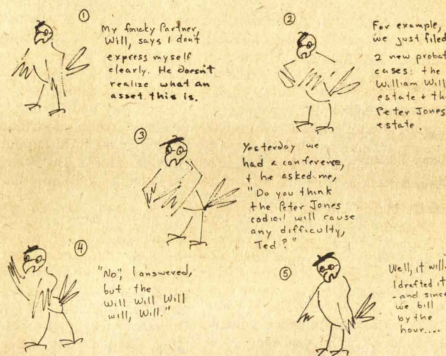 ①
My finicky Partner,
Will, says I don't
express myself
clearly. He doesn't
realize what an
asset this is.
②
For example,
we just filed
2 new probat
cases: the
William Will
estate + the
Peter Jones
estate.
③
Yesterday we
had a conference,
+ he asked me,
"Do you think
the Peter Jones
codicil will cause
any difficulty,
Ted?"
④
"No", I answered,
but the
Will Will Will
will, Will."
⑤
Well, it will.
I drafted it
- and since
we bill
by the
hour....